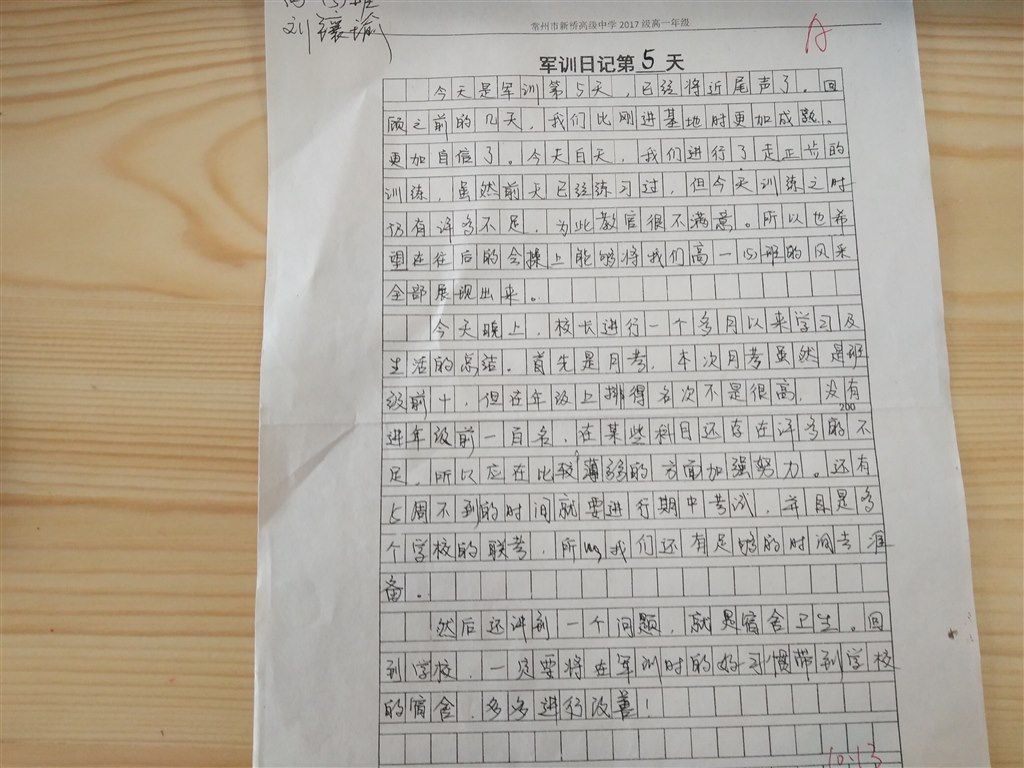 常州市新桥高级中学 2017 级高一年级
A
刘
军训日记第 5 天
今天是军训第5天，已经将近尾声了。回
顾之前的几天，我们比刚进基地时更加成熟。
更加自信了。今天白天，我们进行了走正步的
训练，虽然前天已经练习过，但今天训练之时
仍有许多不足，为此教官很不满意。所以也希
望在往后的会操上能够将我们高一(5)班的风采
全部展现出来。
今天晚上，校长进行一个多月以来学习及
生活的总结。首先是月考，本次月考虽然是班
级前十，但在年级上排得名次不是很高，没有
200
进年级前一百名，在某些科目还存在许多的不
足，所以应在比较薄弱的方面加强努力。还有
5周不到的时间就要进行期中考试，并且是多
个学校的联考，所以我们还有足够的时间去准
备。
然后还讲到一个问题，就是宿舍卫生。回
到学校，一定要将在军训时的好习惯带到学校
的宿舍，多多进行改善！
10.13